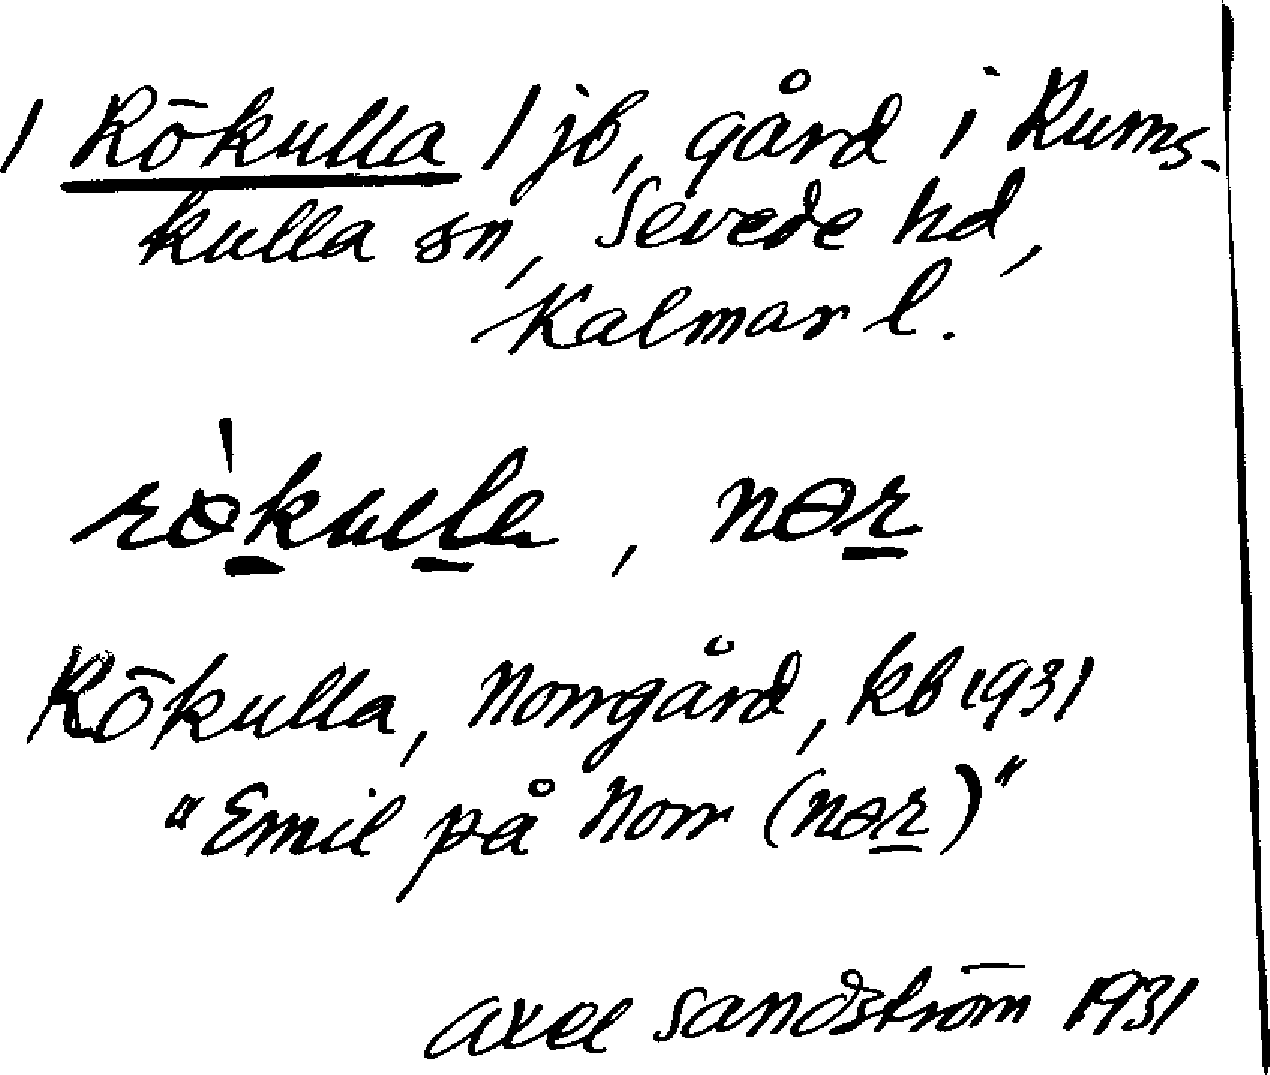 1 Rökulla 1 jb, gård i Rums-
kulla sn, Sevede hd,
Kalmar l.
nər
Rökulla, Norrgård, kb 1931
"Emil på Norr (nər)"
Axel Sandström 1931